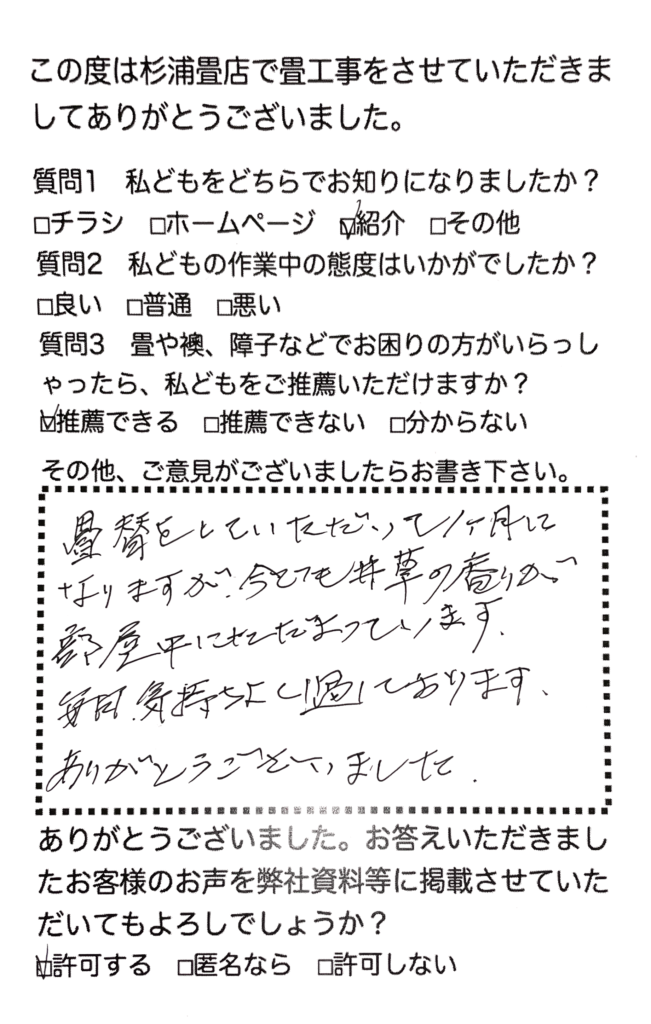 この度は杉浦畳店で畳工事をさせていただきま
してありがとうございました。
質問1　私どもをどちらでお知りになりましたか？
□チラシ　□ホームページ　☑紹介　□その他
質問2　私どもの作業中の態度はいかがでしたか？
□良い　□普通　□悪い
質問3　畳や襖、障子などでお困りの方がいらっし
ゃったら、私どもをご推薦いただけますか？
☑推薦できる　□推薦できない　□分からない
その他、ご意見がございましたらお書き下さい。
畳替をしていただいて1ヶ月に
なりますが、今でも井草の香りが
部屋中にただまっています、
毎日、気持ちよく過しております、
ありがとうございました、
ありがとうございました。お答えいただきまし
たお客様のお声を弊社資料等に掲載させていた
だいてもよろしでしょうか？
☑許可する　□匿名なら　□許可しない